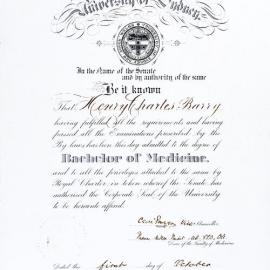 University of Sydney.
In the Name of the Senate
and by authority of the same
Be it known
That Henry Charles Barry
having fulfilled all the requirements and having
passed all the Examinations prescribed by the
By laws has been this day admitted to the degree of
Bachelor of Medicine,
and to all the privileges attached to the same by
Royal Charter, in token whereof the Senate has
authorised the Corporate Seal of the University
to be hereunto affixed.
Vice Chancellor
Dean of the Faculty of Medicine
Dated the first day of October